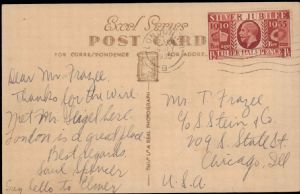 Excel Series
POST CARD
FOR CORRESPONDENCE
FOR ADDRESS
SILVER JUBILEE
1910 1935
THREE HALFPENCE
Dear Mr. Frazee,
Thanks for the wire
Met Mr. Siegel here.
London is a great place.
Best regards,
Saul Spencer
Say hello to
Mr. T. Frazee
c/o S. Stein & Co.
209 S. State St.
Chicago, Ill
U.S.A